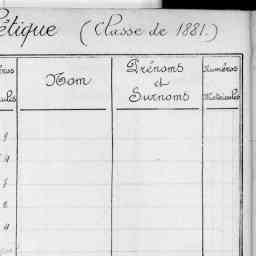 étique (Classe de 1881.)
Nom
Prénoms
et
Surnoms
Numéros
Matricules